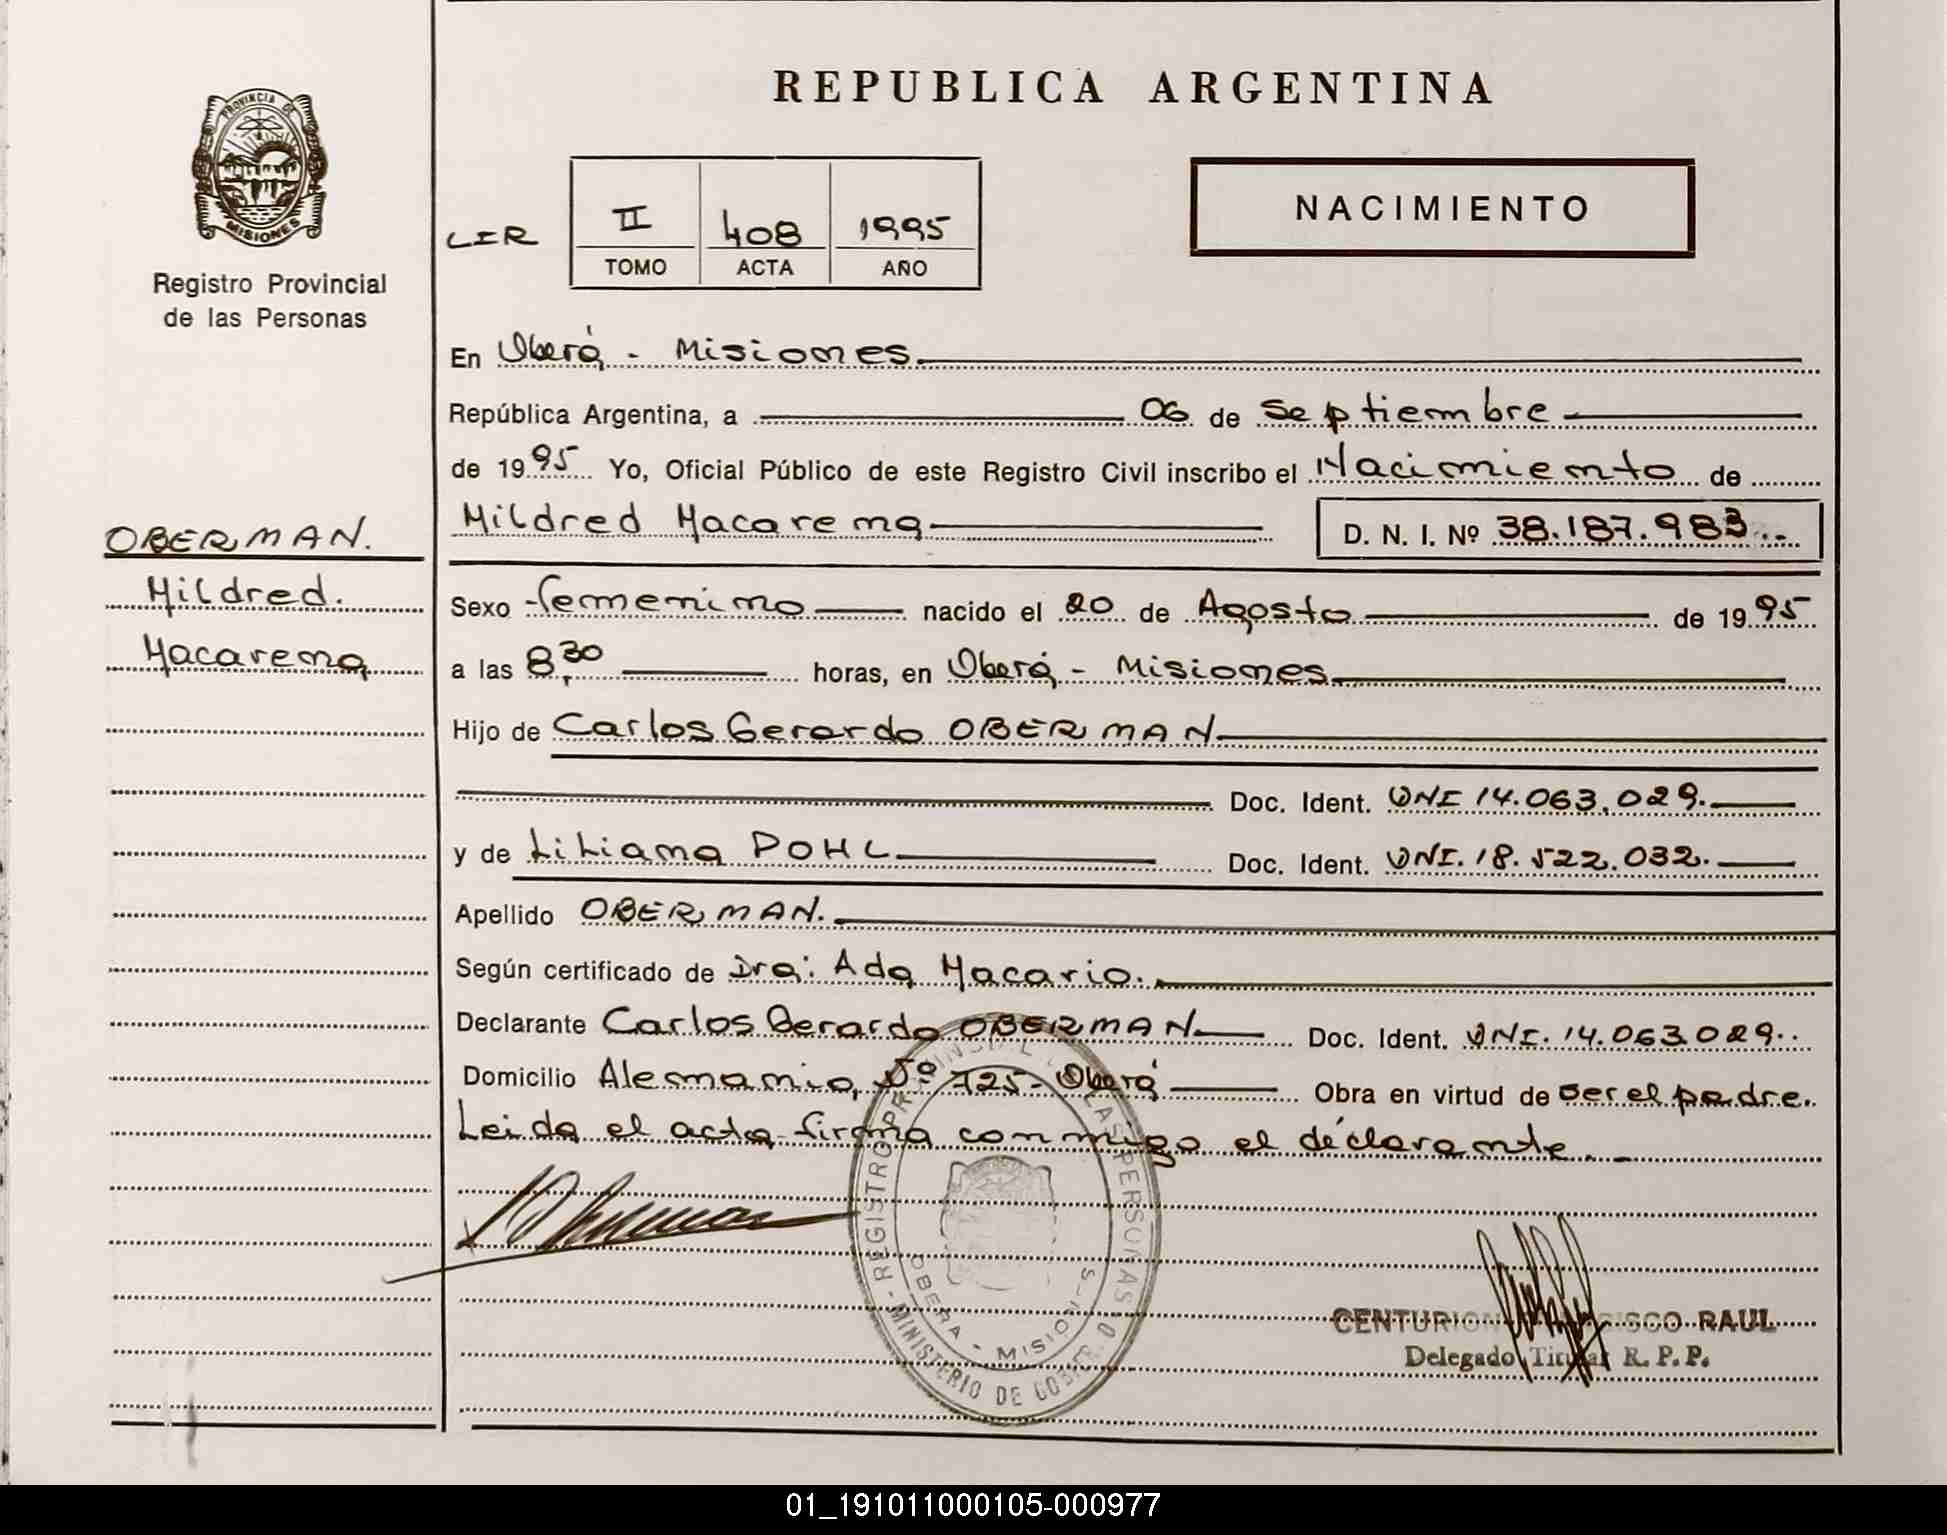 PROVINCIA DE
MISIONES
Registro Provincial
de las Personas
OBERMAN.
Mildred.
Macarena
REPUBLICA ARGENTINA
LER
II
408
1995
TOMO
ACTA
AÑO
NACIMIENTO
En Oberá - Misiones.
República Argentina, a 06 de Septiembre
de 1995 Yo, Oficial Público de este Registro Civil inscribo el Nacimiento de
Mildred Macarena D. N. I. Nº 38.187.983..
Sexo femenino nacido el 20 de Agosto de 1995
a las 8,30 horas, en Oberá - Misiones.
Hijo de Carlos Gerardo OBERMAN.
Doc. Ident. DNI 14.063.029.
y de Liliana POHL Doc. Ident. DNI. 18.522.032.
Apellido OBERMAN.
Según certificado de Dra: Ada Macario.
Declarante Carlos Gerardo OBERMAN Doc. Ident. DNI. 14.063.029..
Domicilio Alemania, Nº 725- Oberá Obra en virtud de ser el padre.
Leida el acta firma conmigo el declarante. -
REGISTRO PROVINCIAL DE LAS PERSONAS
OBERA - MISIONES
MINISTERIO DE GOBIERNO
CENTURION FRANCISCO RAUL
Delegado Titular R. P. P.
01_191011000105-000977